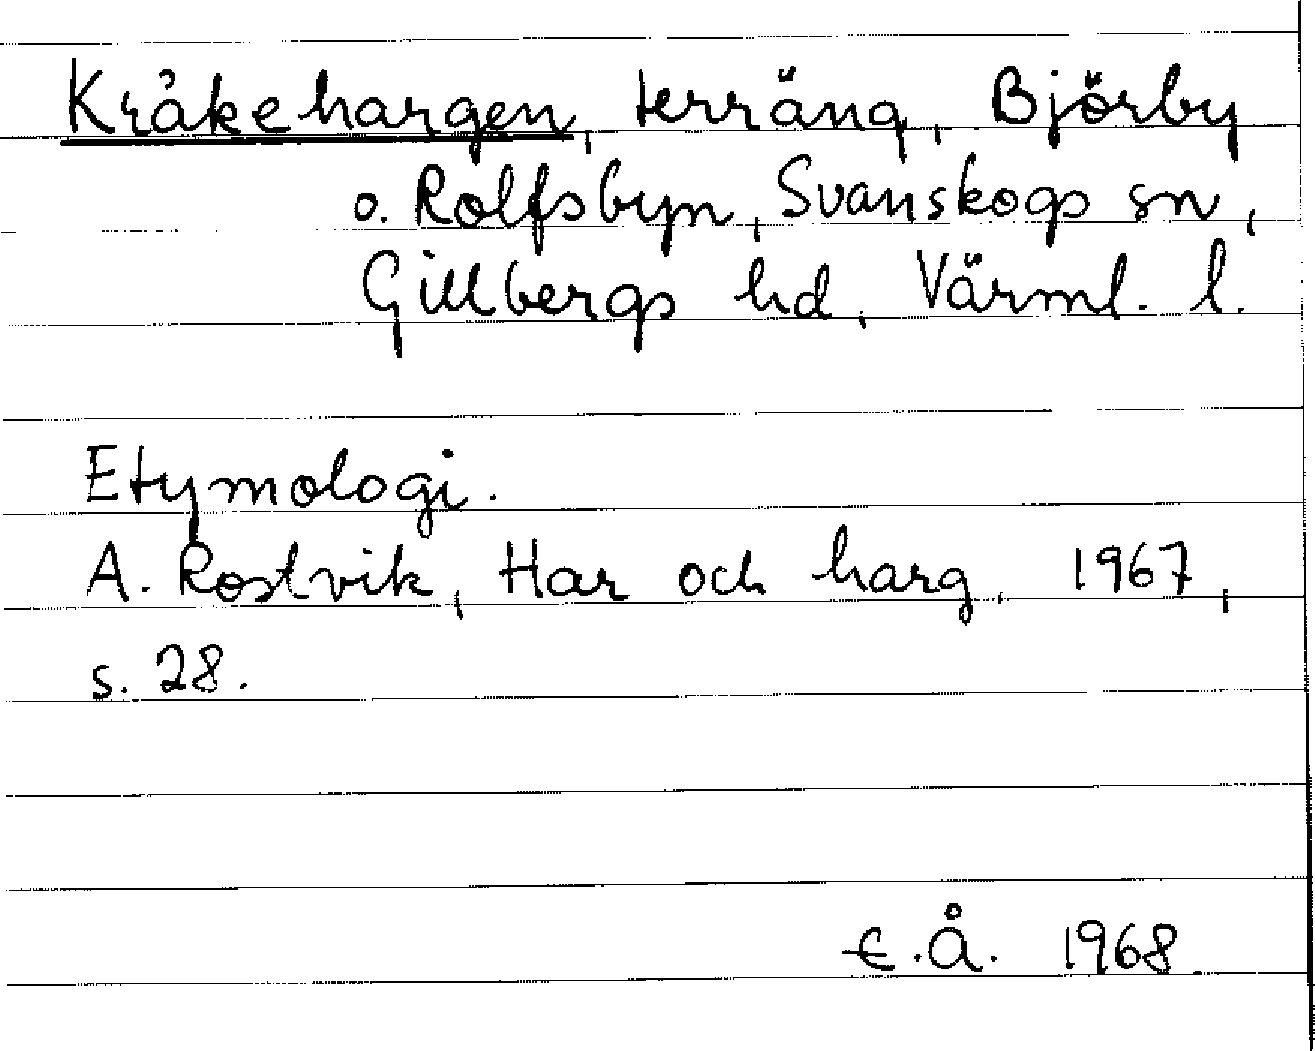 Kråkehargen, terräng, Björby
o. Rolfsbyn, Svanskogs sn,
Gillbergs hd, Värml. l.
Etymologi.
A. Rostvik, Har och harg, 1967,
s. 28.
E.Å. 1968